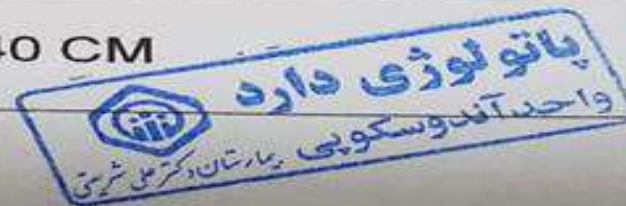 40 CM
پاتولوژی دارد
واحد آندوسکوپی بیمارستان دکتر علی شریعتی